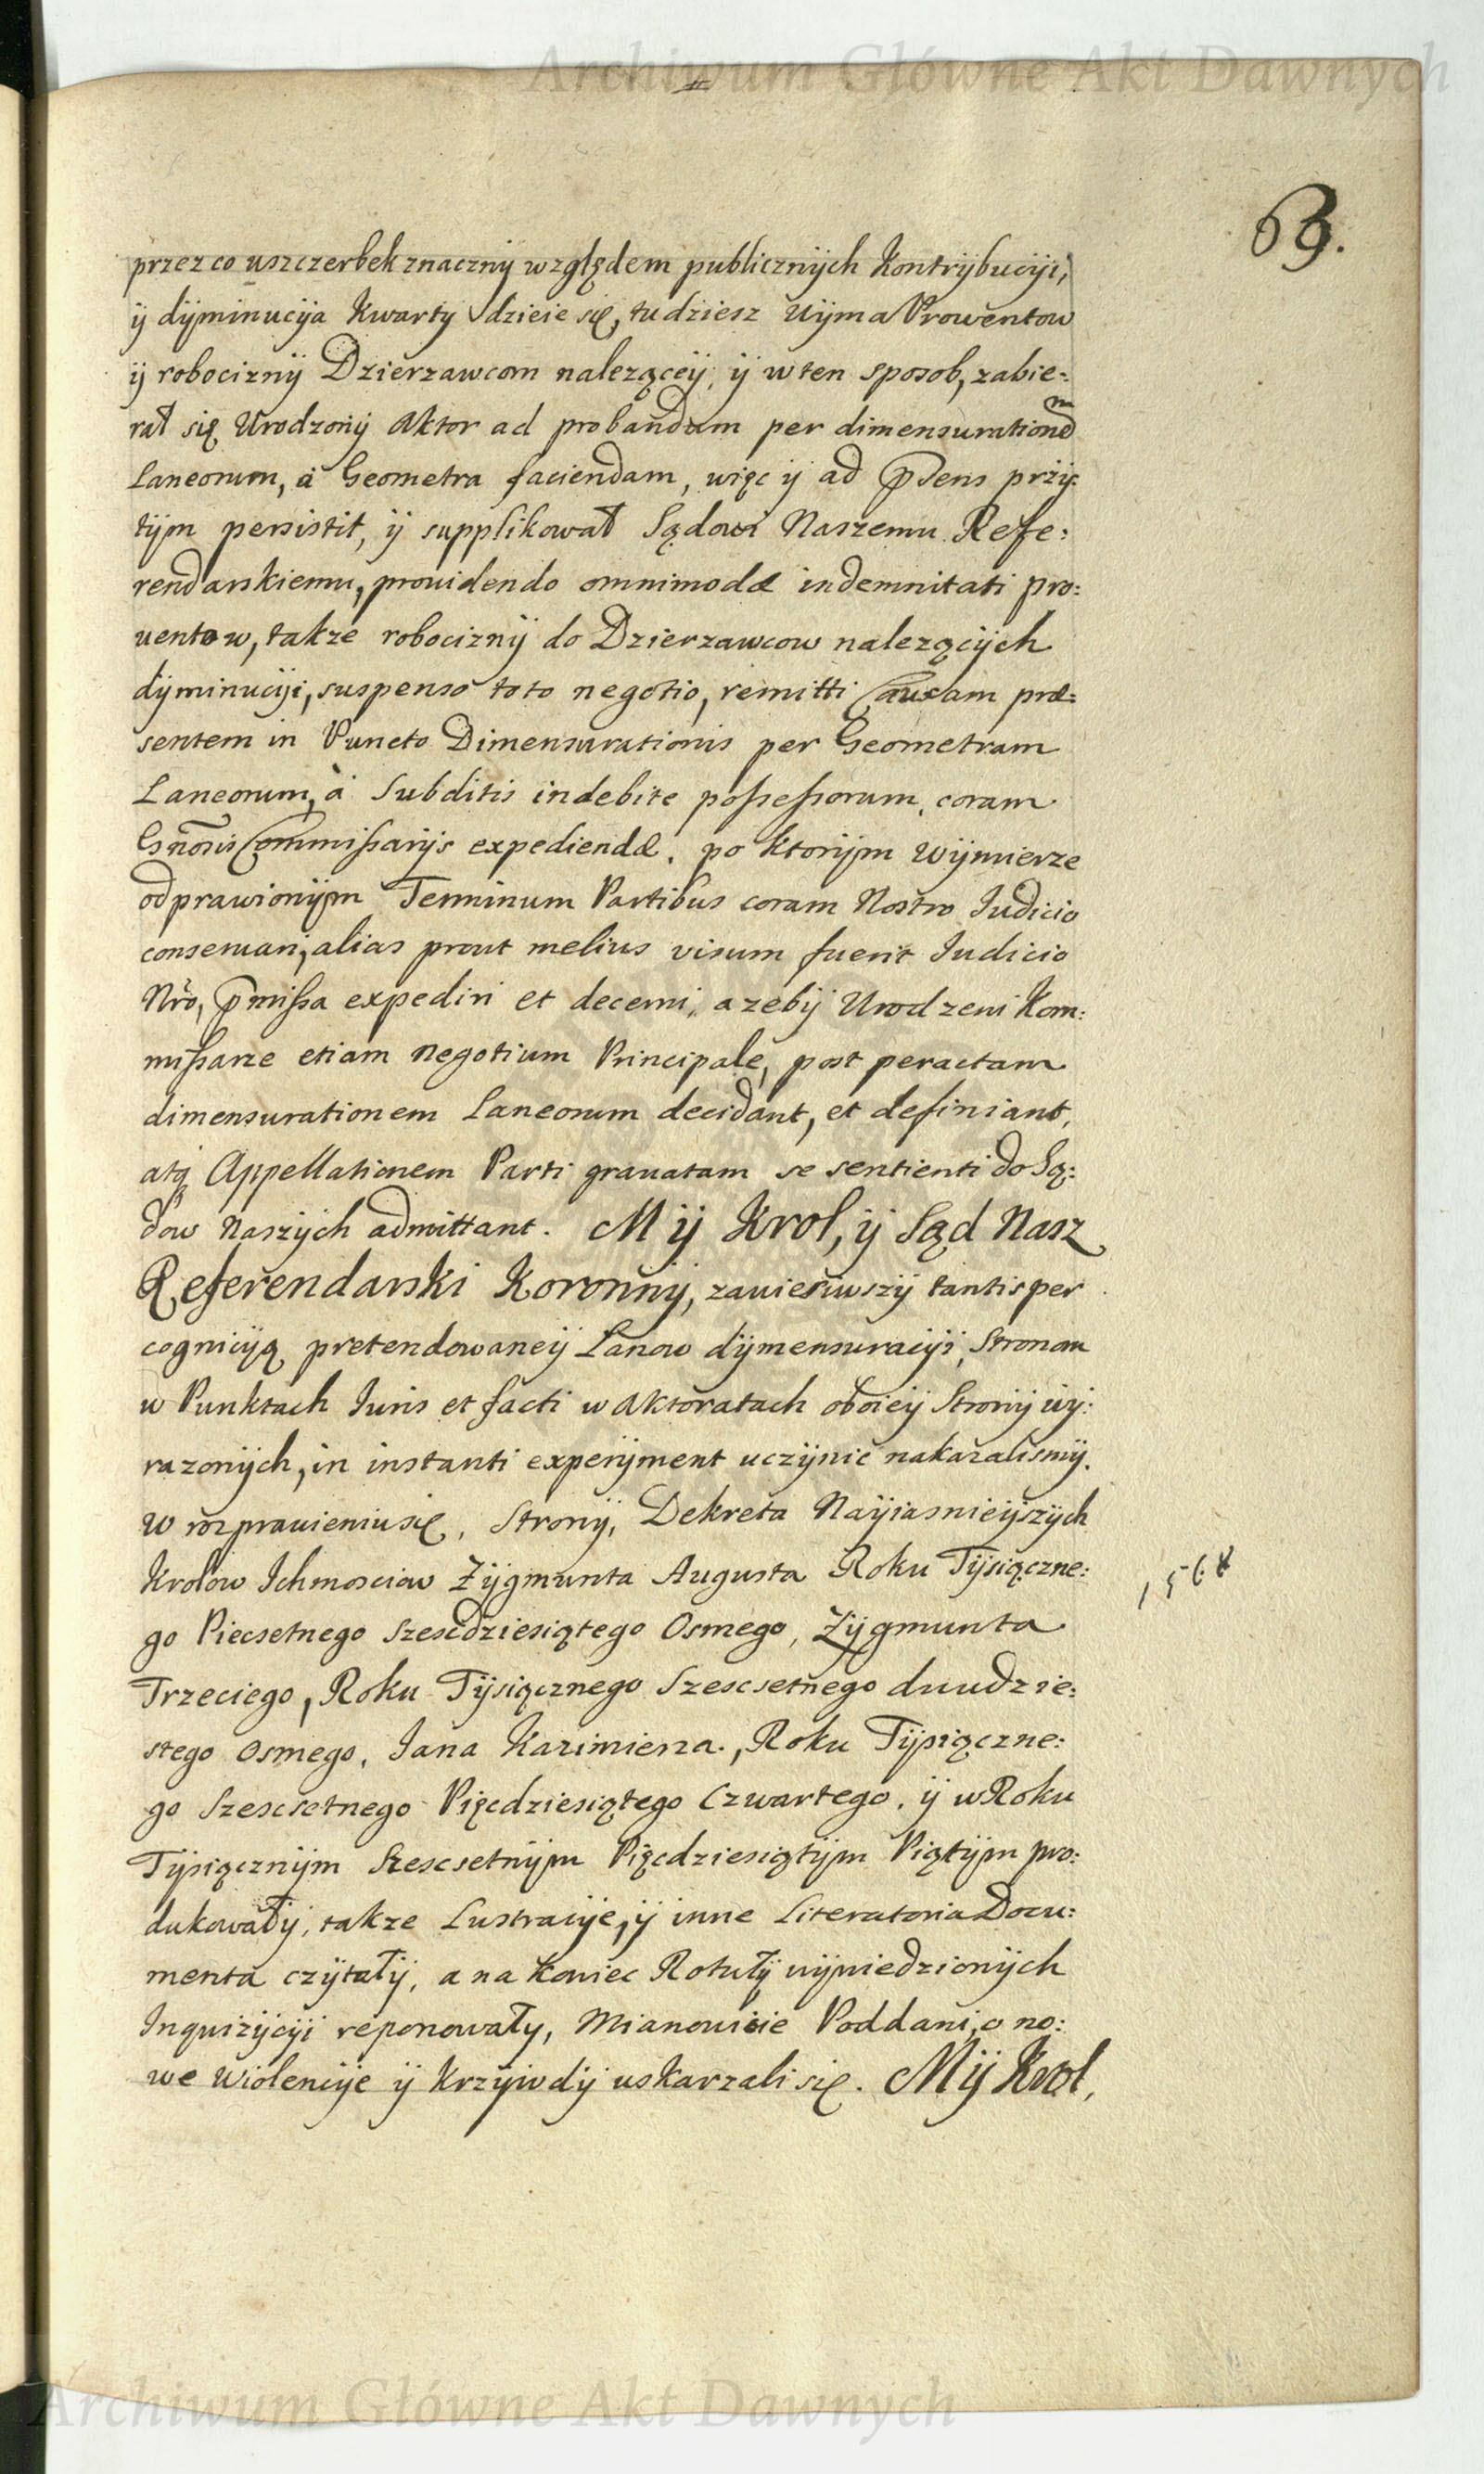 Archiwum Główne Akt Dawnych
69.
przez co uszczerbek znaczny względem publicznych Kontrybucyi,
ÿ dyminucÿa Kwarty dzieie się, tudziesz Uÿma Prowentow
ÿ robociznÿ Dzierzawcom nalezącey, ÿ w ten sposob, zabie:
rał się Urodzonÿ Aktor ad probandum per dimensurationem
Laneorum, à Geometra faciendam, więc ÿ ad p̄sens przÿ
tÿm persistit, ÿ supplikował Sądowi Naszemu Refe:
rendarskiemu, prouidendo omnimodæ indemnitati pro:
uentow, takze robociznÿ do Dzierzawcow nalezącÿch
dÿminucÿi, suspenso toto negotio, remitti Causam præ:
sentem in Puncto Dimensurationis per Geometram
Laneorum, à Subditis indebite possessorum, coram
Gn̄osis Commissarÿs expediendæ, po ktorÿm Wÿmierze
odprawionÿm Terminum Partibus coram Nostro Iudicio
conseruari, alias prout melius visum fuerit Iudicio
Nr̄o, p̄missa expediri et decerni, azebÿ Urodzeni Kom:
missarze etiam negotium Principale, post peractam
dimensurationem Laneorum decidant, et definiant,
atq́ Appellationem Parti grauatam se sentienti do Są:
dow Naszÿch admittant. Mÿ Krol, ÿ Sąd Nasz
Referendarski Koronnÿ, zawiesiwszÿ tantisper
cognicÿą pretendowaneÿ Lanow dÿmensuracÿi, Stronom
w Punktach Iuris et facti w aktoratach oboieÿ Stronÿ wÿ:
razonÿch, in instanti experÿment uczÿnic nakazalismÿ.
W rozprawieniu się, Stronÿ, Dekreta Naÿiasnieÿszÿch
Krolow Ichmosciow Zÿgmunta Augusta Roku Tÿsiączne:
1568
go Piecsetnego Szescdziesiątego Osmego, Zÿgmunta
Trzeciego, Roku Tÿsiącznego Szescsetnego dwudzie:
stego Osmego, Iana Kazimierza, Roku Tÿsiączne:
go Szescsetnego Pięcdziesiątego Czwartego, ÿ w Roku
Tÿsiącznÿm Szescsetnÿm Pięcdziesiątÿm Piątÿm pro:
dukowałÿ, takze Lustracÿe, ÿ inne Literatoria Docu:
menta czÿtałÿ, a na koniec Rotułÿ wÿwiedzionÿch
Inquizÿcÿi reponowały, Mianowicie Poddani, o no:
we wiolencÿe ÿ krzÿwdÿ uskarzali się. Mÿ Krol,
Archiwum Główne Akt Dawnych